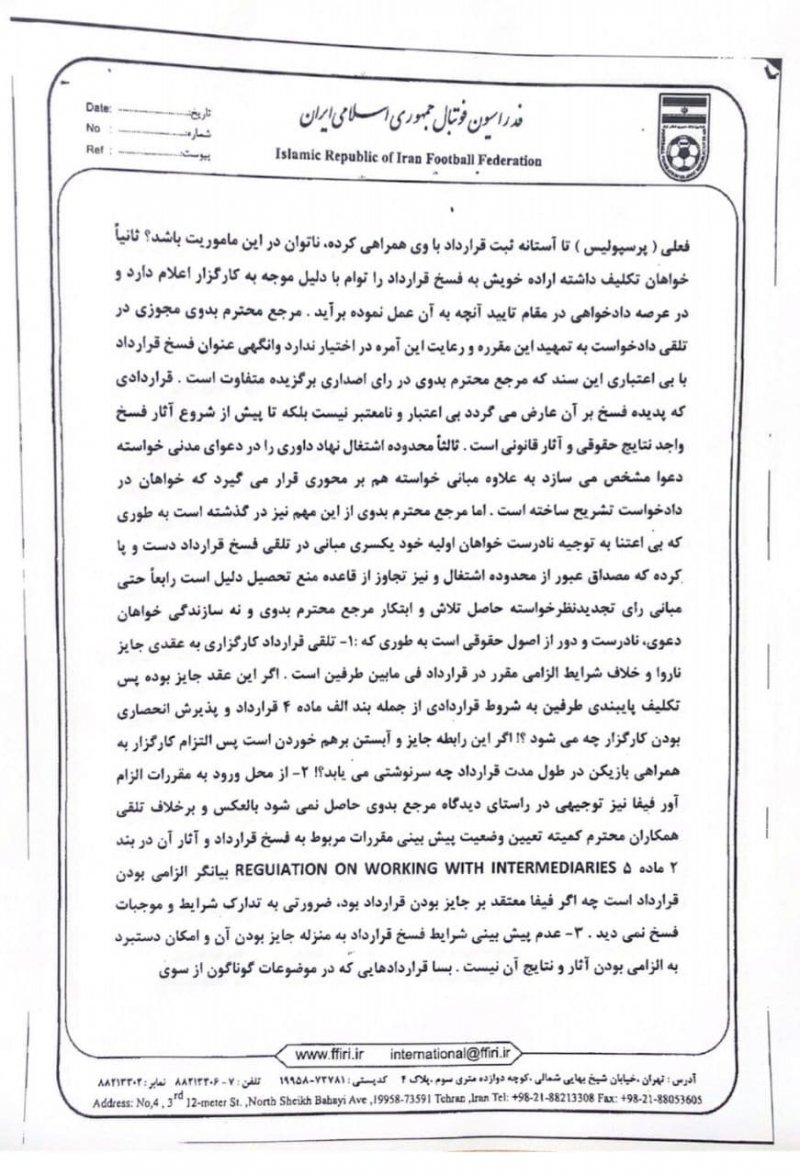 Date: تاریخ:
No : شماره:
Ref : پیوست:
فدراسیون فوتبال جمهوری اسلامی ایران
Islamic Republic of Iran Football Federation
فعلی ( پرسپولیس ) تا آستانه ثبت قرارداد با وی همراهی کرده، ناتوان در این ماموریت باشد؟ ثانیاً
خواهان تکلیف داشته اراده خویش به فسخ قرارداد را توام با دلیل موجه به کارگزار اعلام دارد و
در عرصه دادخواهی در مقام تایید آنچه به آن عمل نموده برآید . مرجع محترم بدوی مجوزی در
تلقی دادخواست به تمهید این مقرره و رعایت این آمره در اختیار ندارد وانگهی عنوان فسخ قرارداد
با بی اعتباری این سند که مرجع محترم بدوی در رای اصداری برگزیده متفاوت است . قراردادی
که پدیده فسخ بر آن عارض می گردد بی اعتبار و نامعتبر نیست بلکه تا پیش از شروع آثار فسخ
واجد نتایج حقوقی و آثار قانونی است . ثالثاً محدوده اشتغال نهاد داوری را در دعوای مدنی خواسته
دعوا مشخص می سازد به علاوه مبانی خواسته هم بر محوری قرار می گیرد که خواهان در
دادخواست تشریح ساخته است . اما مرجع محترم بدوی از این مهم نیز در گذشته است به طوری
که بی اعتنا به توجیه نادرست خواهان اولیه خود یکسری مبانی در تلقی فسخ قرارداد دست و پا
کرده که مصداق عبور از محدوده اشتغال و نیز تجاوز از قاعده منع تحصیل دلیل است رابعاً حتی
مبانی رای تجدیدنظرخواسته حاصل تلاش و ابتکار مرجع محترم بدوی و نه سازندگی خواهان
دعوی، نادرست و دور از اصول حقوقی است به طوری که :۱- تلقی قرارداد کارگزاری به عقدی جایز
ناروا و خلاف شرایط الزامی مقرر در قرارداد فی مابین طرفین است . اگر این عقد جایز بوده پس
تکلیف پایبندی طرفین به شروط قراردادی از جمله بند الف ماده ۴ قرارداد و پذیرش انحصاری
بودن کارگزار چه می شود ؟! اگر این رابطه جایز و آبستن برهم خوردن است پس التزام کارگزار به
همراهی بازیکن در طول مدت قرارداد چه سرنوشتی می یابد؟! ۲- از محل ورود به مقررات الزام
آور فیفا نیز توجیهی در راستای دیدگاه مرجع بدوی حاصل نمی شود بالعکس و برخلاف تلقی
همکاران محترم کمیته تعیین وضعیت پیش بینی مقررات مربوط به فسخ قرارداد و آثار آن در بند
۲ ماده ۵ REGUIATION ON WORKING WITH INTERMEDIARIES بیانگر الزامی بودن
قرارداد است چه اگر فیفا معتقد بر جایز بودن قرارداد بود، ضرورتی به تدارک شرایط و موجبات
فسخ نمی دید . ۳- عدم پیش بینی شرایط فسخ قرارداد به منزله جایز بودن آن و امکان دستبرد
به الزامی بودن آثار و نتایج آن نیست . بسا قراردادهایی که در موضوعات گوناگون از سوی
www.ffiri.ir international@ffiri.ir
آدرس : تهران ،خیابان شیخ بهایی شمالی ،کوچه دوازده متری سوم ،پلاک ۴ کدپستی : ۷۳۷۸۱-۱۹۹۵۸ تلفن : ۷-۸۸۲۱۳۳۰۶ نمابر : ۸۸۲۱۳۳۰۲
Address: No,4 , 3rd 12-meter St. ,North Sheikh Bahayi Ave ,19958-73591 Tehran ,Iran Tel: +98-21-88213308 Fax: +98-21-88053605